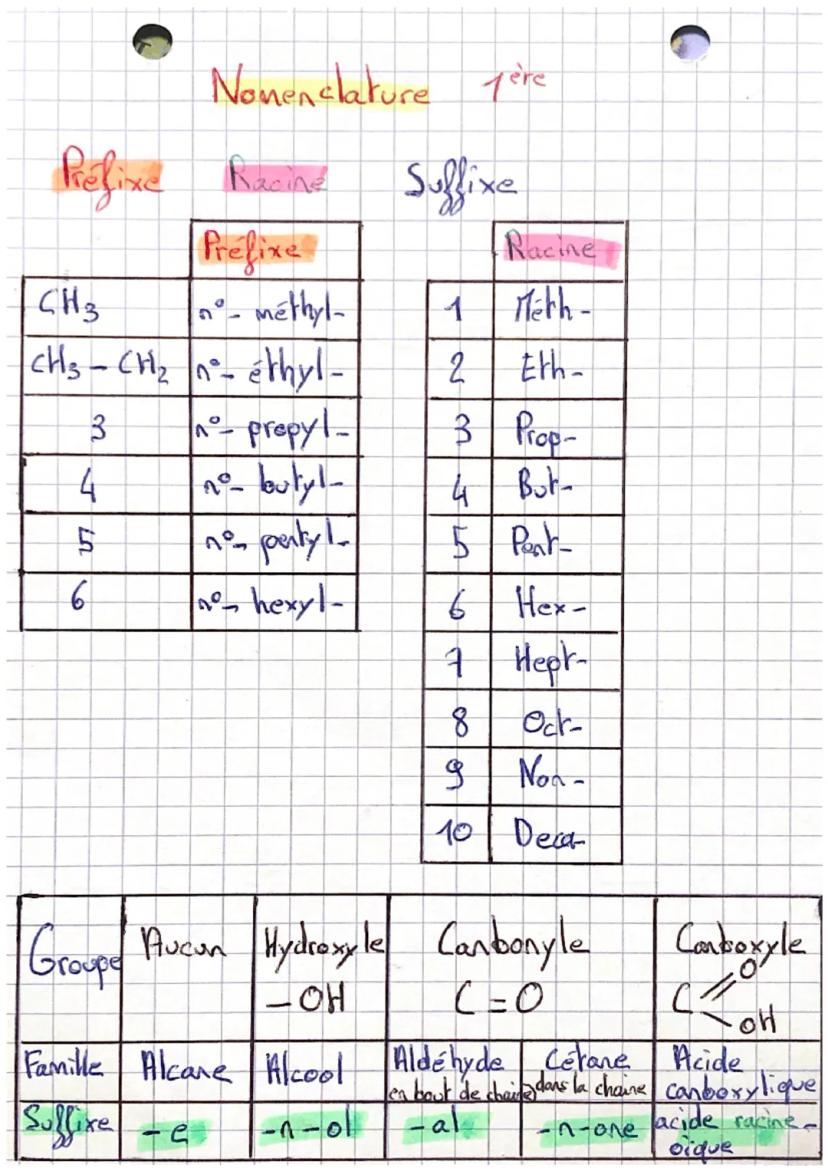 Nomenclature 1ère
Préfixe Racine Suffixe
Préfixe
CH3 n°- méthyl-
CH3 - CH2 n°- éthyl-
3 n°- propyl-
4 n°- butyl-
5 n°- pentyl-
6 n°- hexyl-
Racine
1 Méth-
2 Eth-
3 Prop-
4 But-
5 Pent-
6 Hex-
7 Hept-
8 Oct-
9 Non-
10 Deca-
Groupe Aucun Hydroxyle Carbonyle Carboxyle
-OH C=O C=O
-OH
Famille Alcane Alcool Aldéhyde Cétone Acide
en bout de chaine dans la chaine carboxylique
Suffixe -e -n-ol -al -n-one acide racine-
oïque